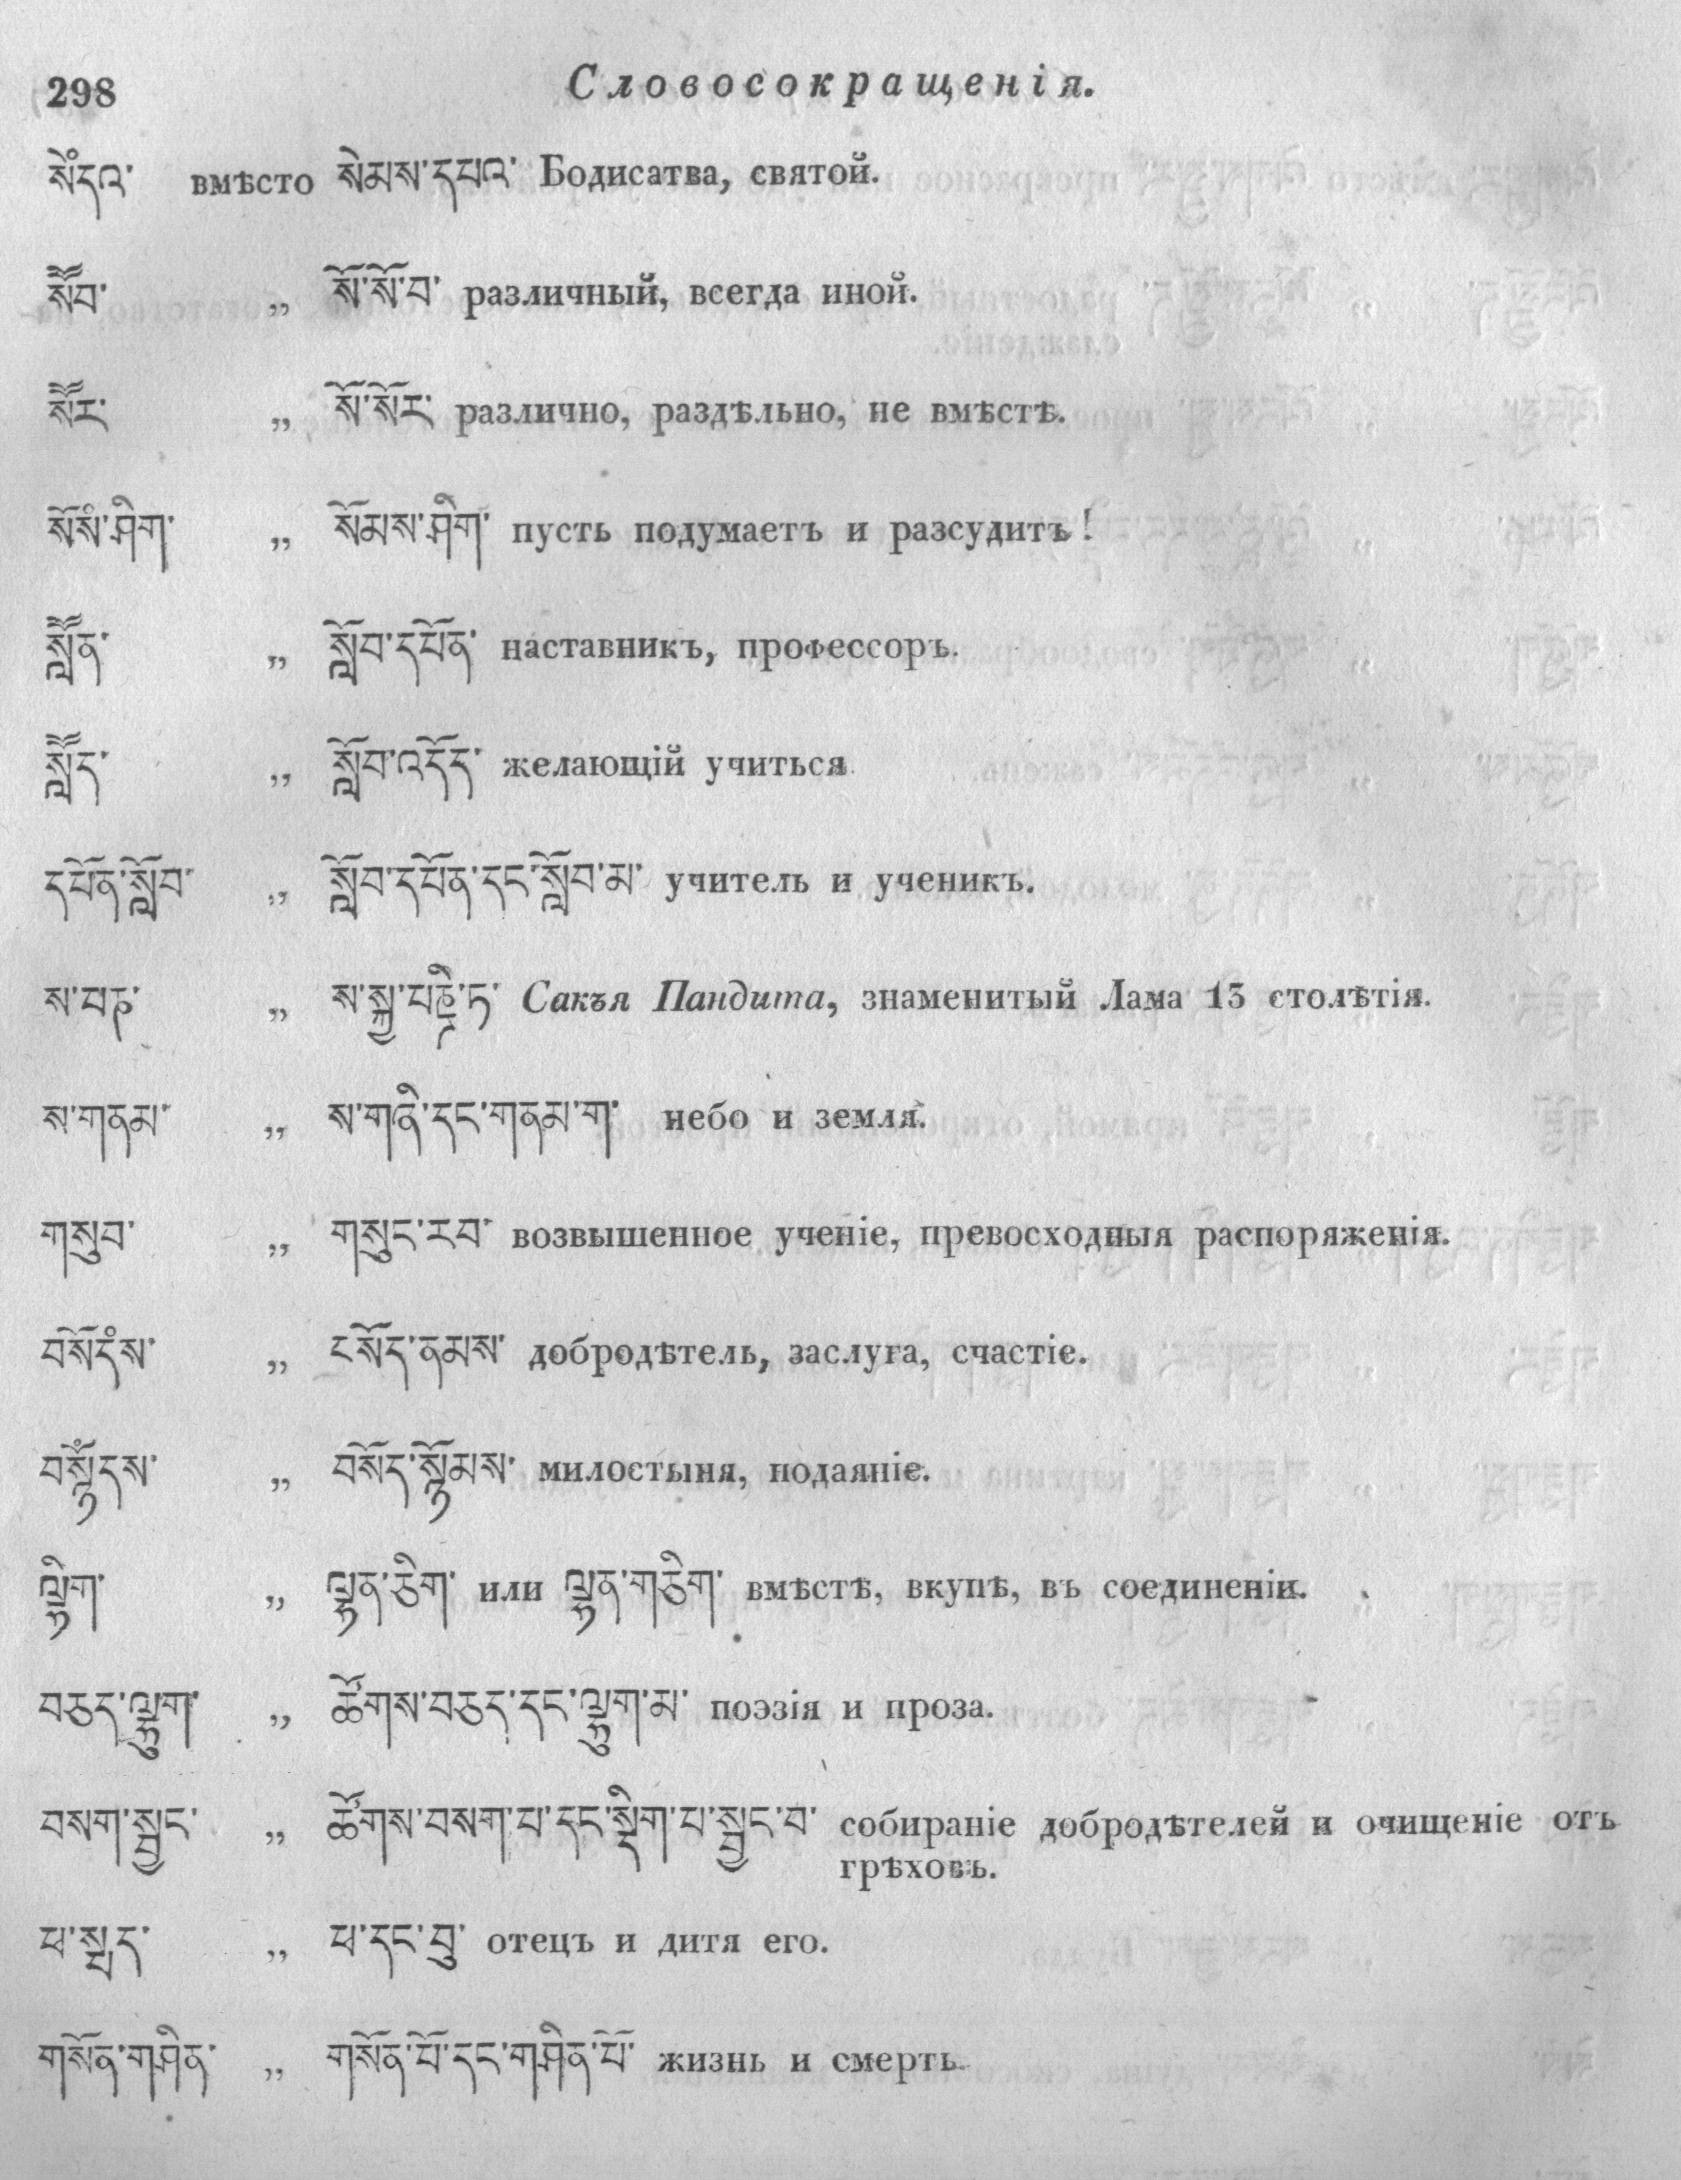 298 Словосокращенія.
སེཾདའ་ вмѣсто སེམས་དཔའ་ Бодисатва, святой.
སོོབ་ „ སོ་སོ་བ་ различный, всегда иной.
སོོར་ „ སོ་སོར་ различно, раздѣльно, не вмѣстѣ.
སོསཾ་ཤིག་ „ སོམས་ཤིག་ пусть подумаетъ и разсудитъ!
སློོན་ „ སློབ་དཔོན་ наставникъ, профессоръ.
སློོད་ „ སློབ་འདོད་ желающій учиться
དཔོན་སློབ་ „ སློབ་དཔོན་དང་སློབ་མ་ учитель и ученикъ.
ས་པཎ་ „ ས་སྐྱ་པཎྜི་ཏ་ Сакъя Пандита, знаменитый Лама 13 столѣтія.
ས་གནམ་ „ ས་གཞི་དང་གནམ་ག་ небо и земля.
གསུབ་ „ གསུང་རབ་ возвышенное ученіе, превосходныя распоряженія.
བསོདཾས་ „ ངསོད་ནམས་ добродѣтель, заслуга, счастіе.
„ བསོད་སྙོམས་ милостыня, подаяніе.
ལྷིག་ „ ལྷན་ཅིག་ или ལྷན་གཅིག་ вмѣстѣ, вкупѣ, въ соединеніи.
བཅད་ལྷུག་ „ ཚོགས་བཅད་དང་ལྷུག་མ་ поэзія и проза.
བསག་སྦྱང་ „ ཚོགས་བསག་པ་དང་སྡིག་པ་སྦྱང་བ་ собираніе добродѣтелей и очищеніе отъ
грѣховъ.
ཕ་སྤད་ „ ཕ་དང་བུ་ отецъ и дитя его.
གསོན་གཤིན་ „ གསོན་པོ་དང་གཤིན་པོ་ жизнь и смерть.